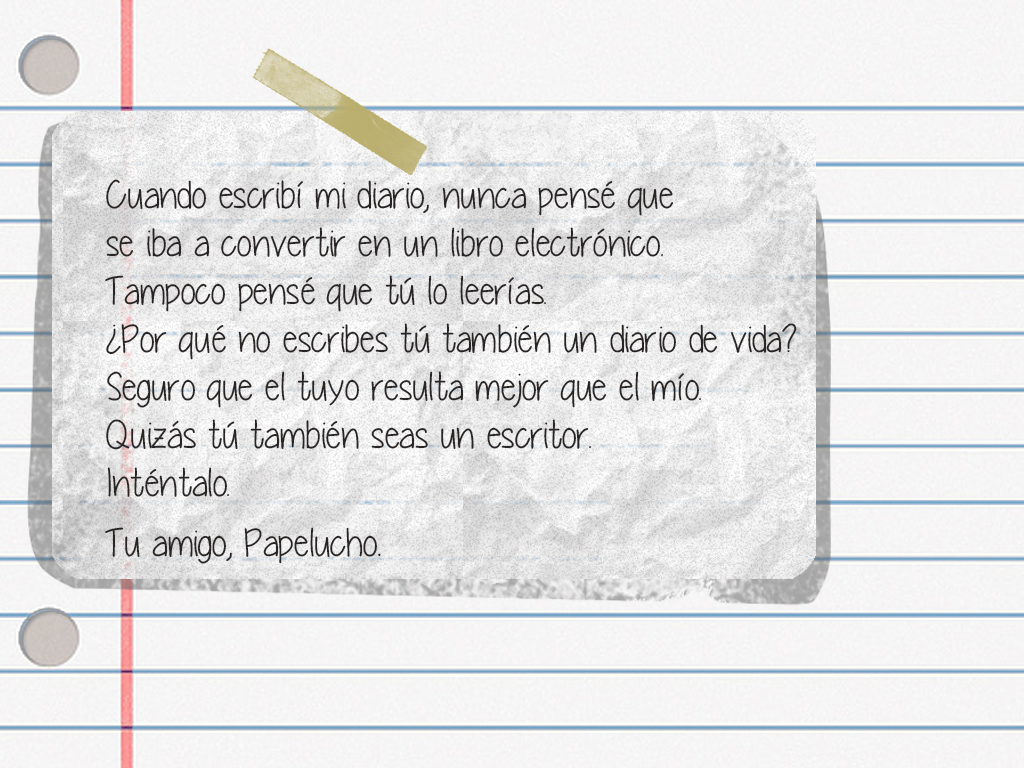 Cuando escribí mi diario, nunca pensé que
se iba a convertir en un libro electrónico.
Tampoco pensé que tú lo leerías.
¿Por qué no escribes tú también un diario de vida?
Seguro que el tuyo resulta mejor que el mío.
Quizás tú también seas un escritor.
Inténtalo.
Tu amigo, Papelucho.